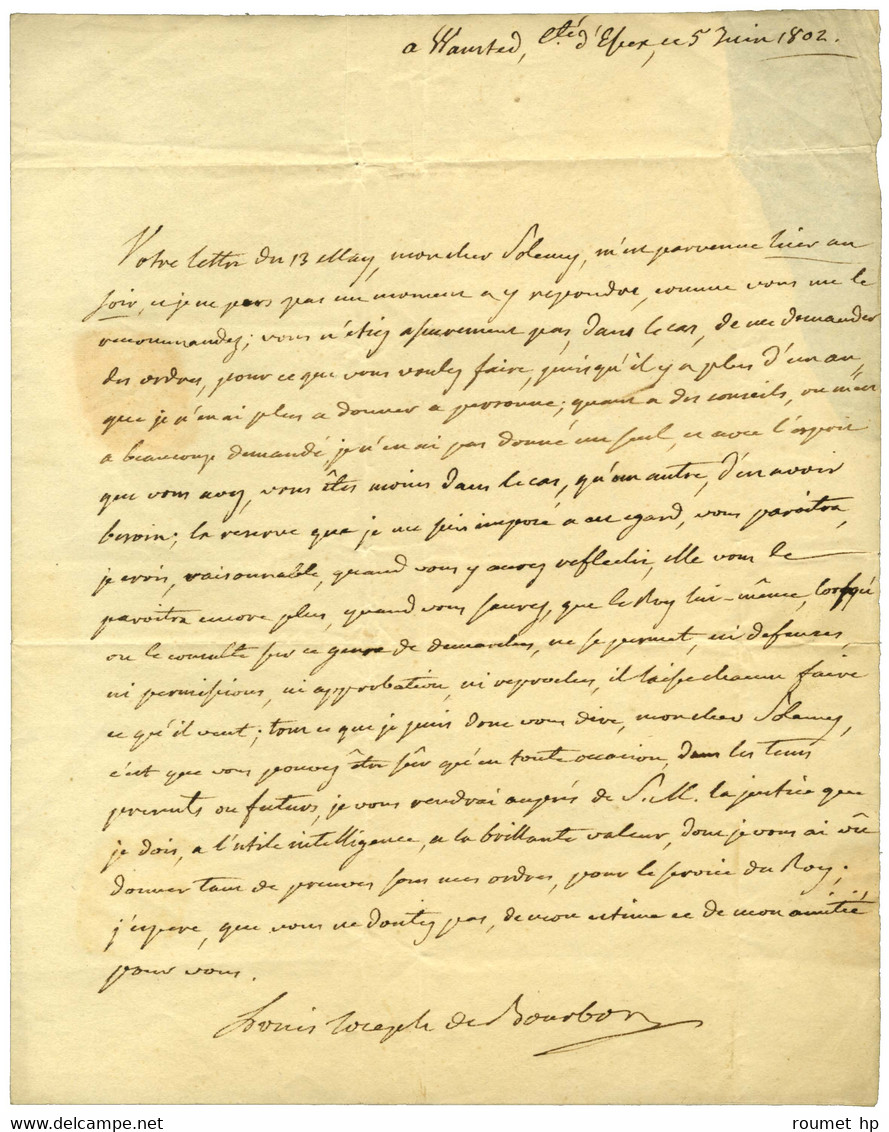 a Wansted, C.té d'Essex, ce 5 Juin 1802.
Votre lettre du 13 May, mon cher Solemy, m'est parvenue hier au
soir, et je ne pers pas un moment a y repondre, comme vous me le
recommandez; vous n'étiez assurement pas, dans le cas, de me demander
des ordres, pour ce que vous voulez faire, puisqu'il y a plus d'un an
que je n'en ai plus a donner a personne; quant a des conseils, on m'en
a beaucoup demandé, je n'en ai pas donné un seul, et avec l'esprit
que vous avez, vous êtes moins dans le cas, qu'un autre, d'en avoir
besoin; la reserve que je me suis imposé a cet egard, vous paroitra,
je crois, raisonnable, quand vous y aurez reflechi, elle vous le
paroitra encore plus, quand vous saurez, que le Roy lui-même, lorsqu'
on le consulte sur ce genre de demarches, ne se permet, ni defenses,
ni permissions, ni approbation, ni reproches, il laisse chacun faire
ce qu'il veut; tout ce que je puis donc vous dire, mon cher Solemy,
c'est que vous pouvez être sûr qu'en toute occasion, dans les tems
presents ou futurs, je vous rendrai auprès de S.M. la justice que
je dois, a l'utile intelligence, a la brillante valeur, dont je vous ai vû
donner tant de preuves sous mes ordres, pour le service du Roy;
j'espere, que vous ne doutez pas, de mon estime et de mon amitié
pour vous.
Louis Joseph de Bourbon
roumet hp